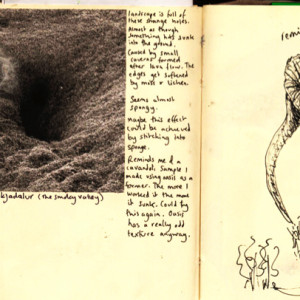 landscape is full of
these strange holes.
Almost as though
something has sunk
into the ground.
Caused by small
caverns formed
after lava flow. The
edges get softened
by moss & lichen.
Seems almost
spongy.
Maybe this effect
could be achieved
by stitching into
sponge.
Reminds me of a
sample I
made using oasis as a
former. The more I
worked it the more
it sunk. Could try
this again. Oasis
has a really odd
texture anyway.
(the smokey valley)
remi